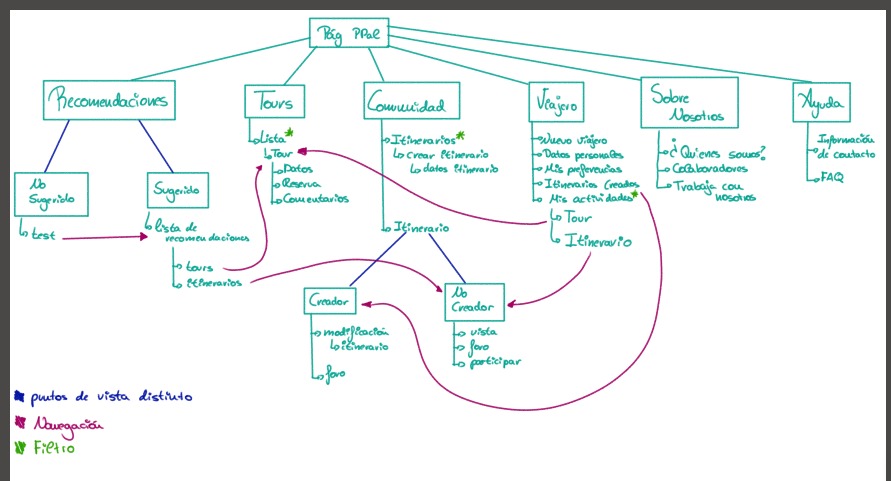 Pág PPal
Recomendaciones
Tours
Comunidad
Viajero
Sobre
Nosotros
Ayuda
No
Sugerido
test
Sugerido
lista de
recomendaciones
tours
itinerarios
Lista*
Tour
Datos
Reserva
Comentarios
Itinerarios*
crear itinerario
datos itinerario
Itinerario
Creador
modificación
itinerario
foro
No
Creador
vista
foro
participar
Nuevo viajero
Datos personales
Mis preferencias
Itinerarios Creados
Mis actividades*
Tour
Itinerario
¿Quienes somos?
Colaboradores
Trabaja con
nosotros
Información
de contacto
FAQ
puntos de vista distinto
Navegación
Filtro